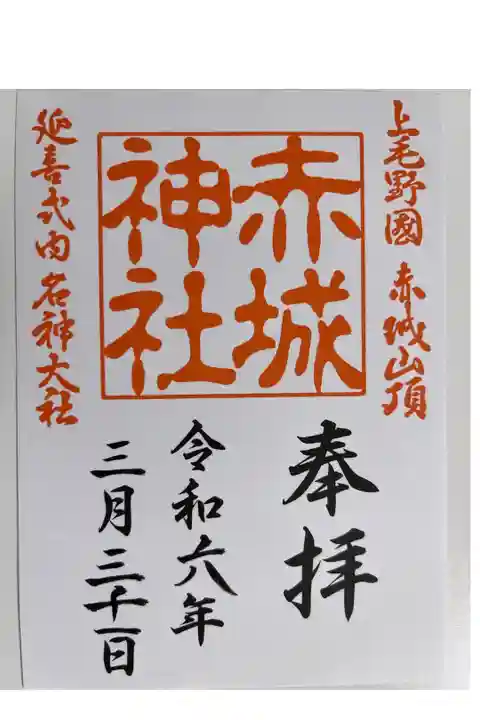 上毛野國 赤城山頂
赤城
神社
延喜式内 名神大社
奉拝
令和六年
三月三十一日